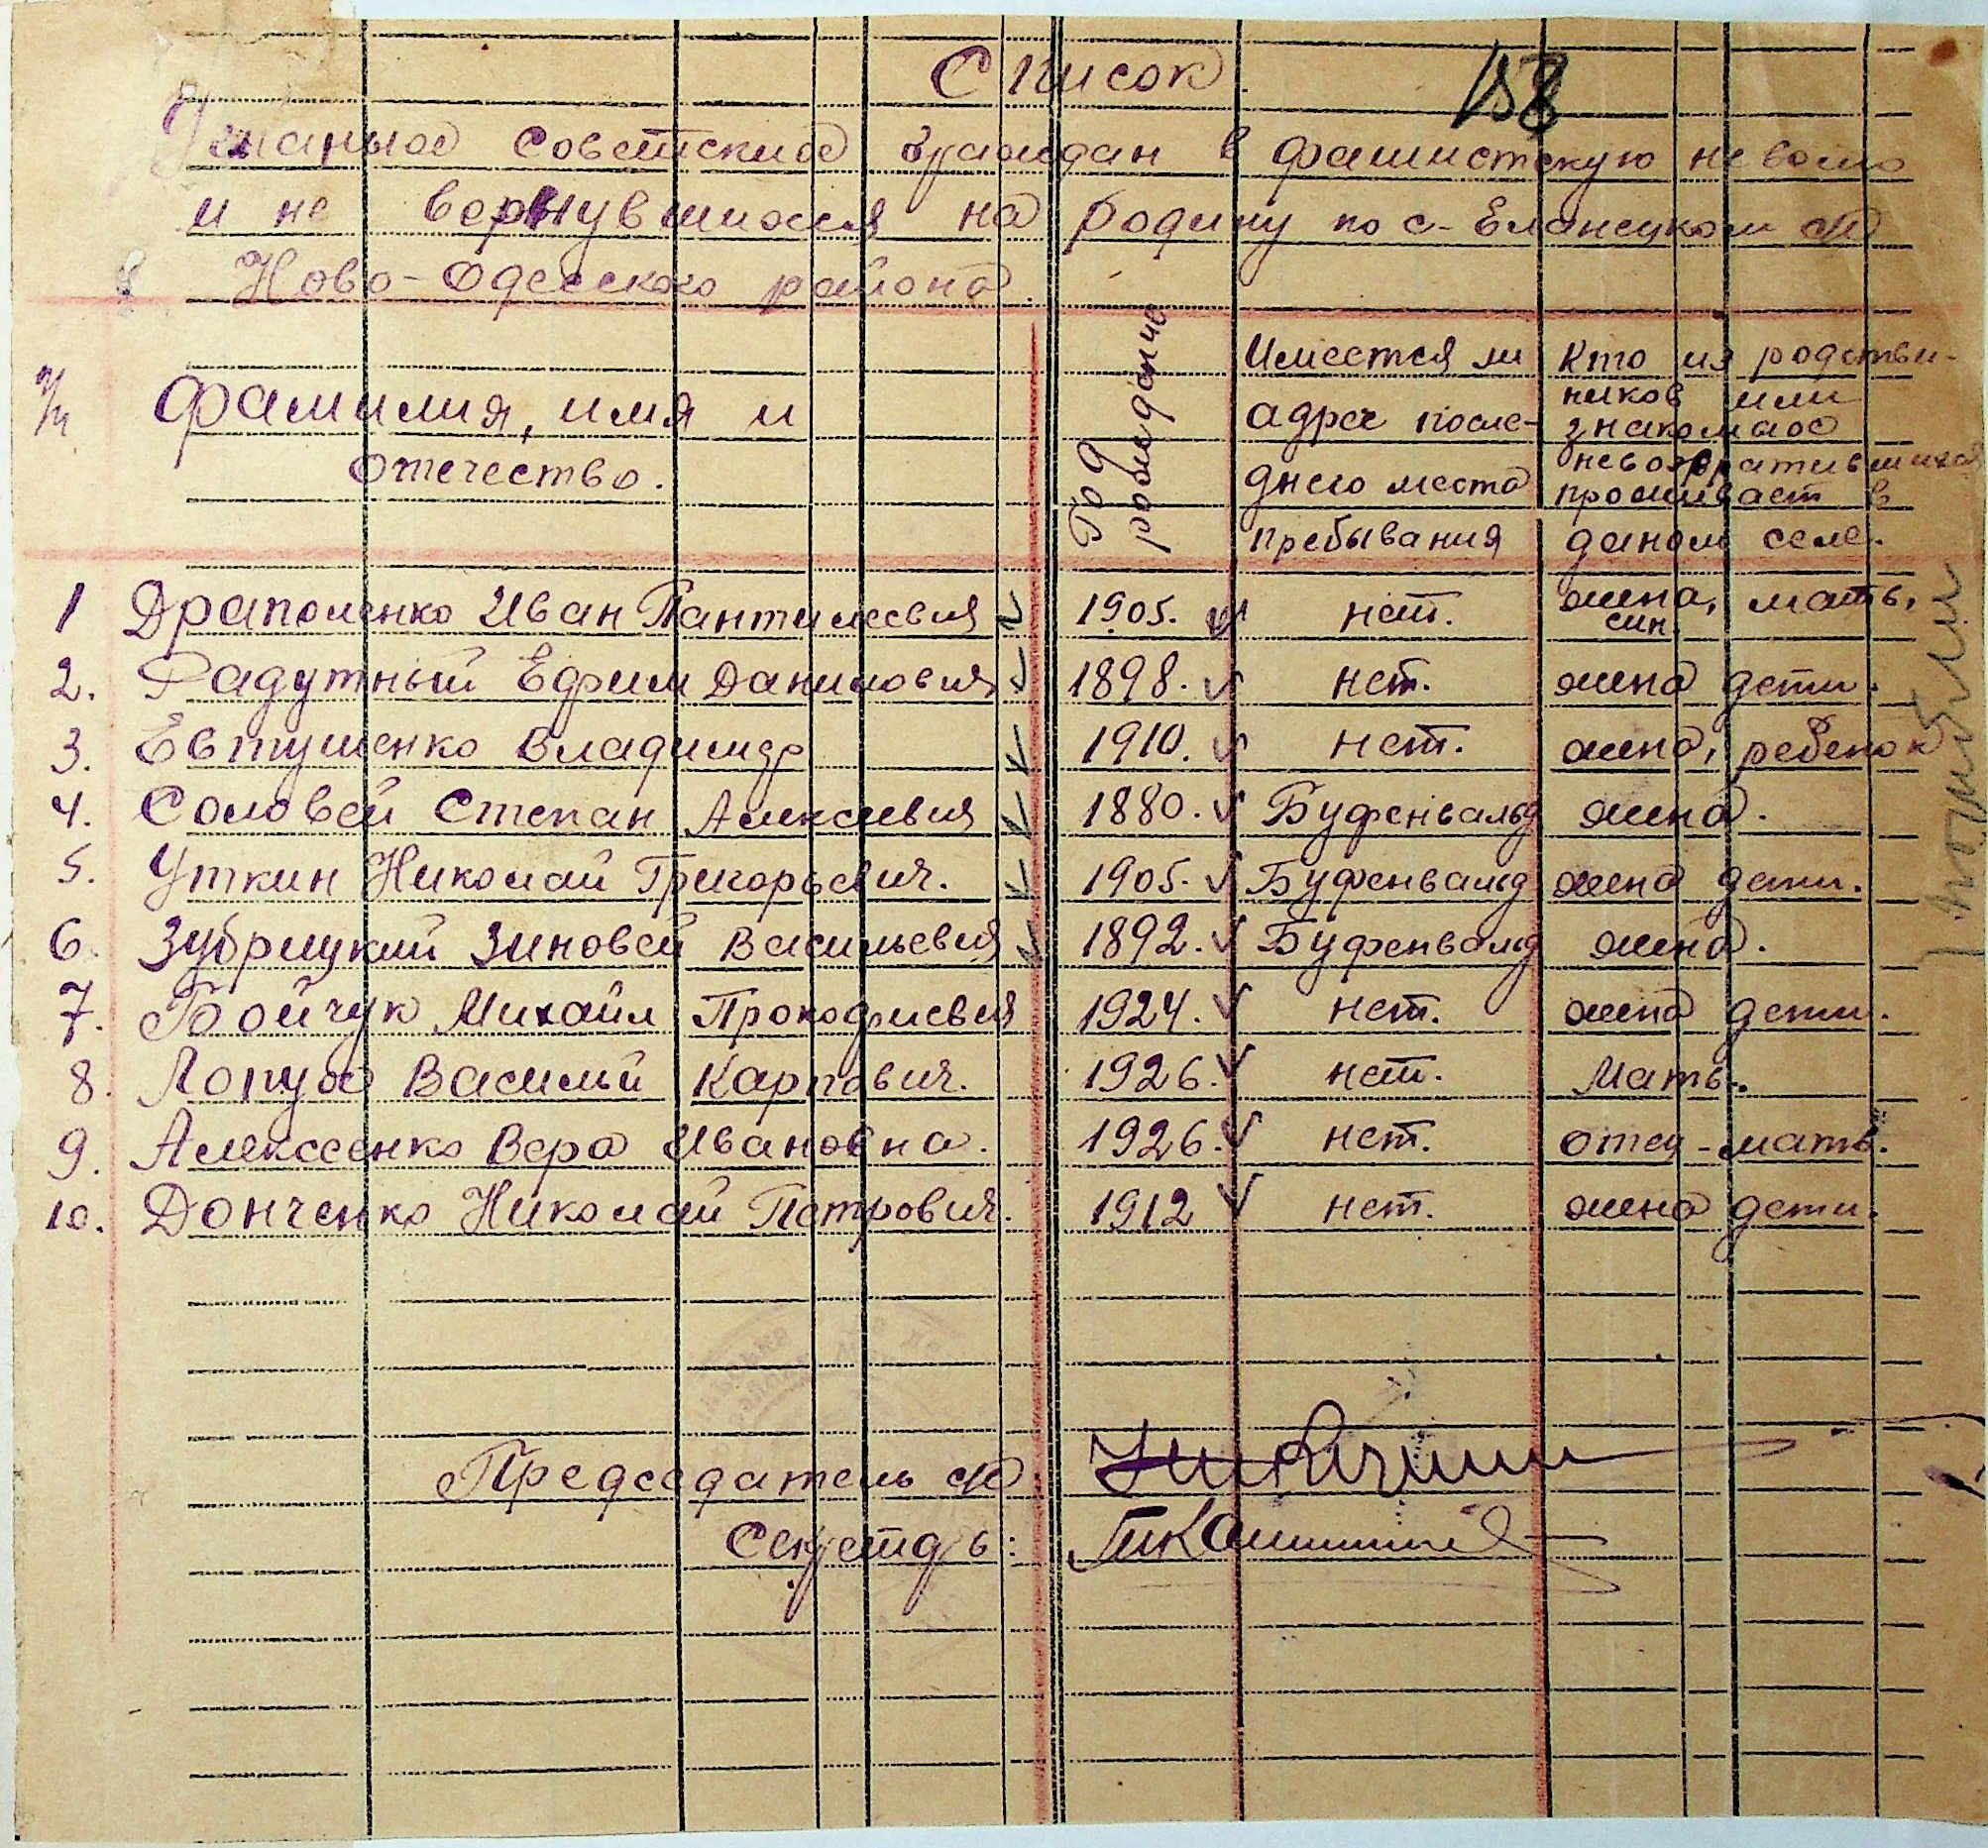 Список
158
Угнаных советских граждан в фашистскую неволю
и не вернувшихся на родину по с-Еланецком с/с
Ново-Одесского района.
п/п Фамилия, имя и отечество. Год рождение Имеется ли адрес после-днего места пребывания Кто из родствен-ников или знакомых невозвратившихся проживает в даном селе.
1 Драполенко Иван Пантилеевич 1905. нет. жена, мать, син.
2. Радутный Ефим Данилович 1898. нет. жена дети.
3. Евтушенко Владимир 1910. нет. жена, ребенок
4. Соловей Степан Алексеевич 1880. Буфенвальд жена.
5. Уткин Николай Григорьевич. 1905. Буфенвальд жена дети.
6. Зубрицкий Зиновей Васильевич 1892. Буфенвальд жена.
7. Бойчук Михаил Прокофиевич 1924. нет. жена дети.
8. Лопух Василий Карпович. 1926. нет. Мать.
9. Алексеенко Вера Ивановна. 1926. нет. отец-мать.
10. Донченко Николай Петрович. 1912 нет. жена дети.
Председатель с/с
Секретарь: